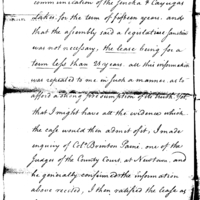 communication of the Seneka & Cayuga
Lakes, for the term of fifteen years. and
that the assembly said a legislative sanction
was not necessary, the lease being for a
term less than 21 years all this information
was repeated to me in such a manner as to
afford a strong presumption of its truth yet
that I might have all the evidence which
the case would then admit of, I made
enquiry of Colo. Benton Paine, one of the
Judges of the County Court, at Newtown, and
he generally confirmed the information
above recited, I then ratified the lease as